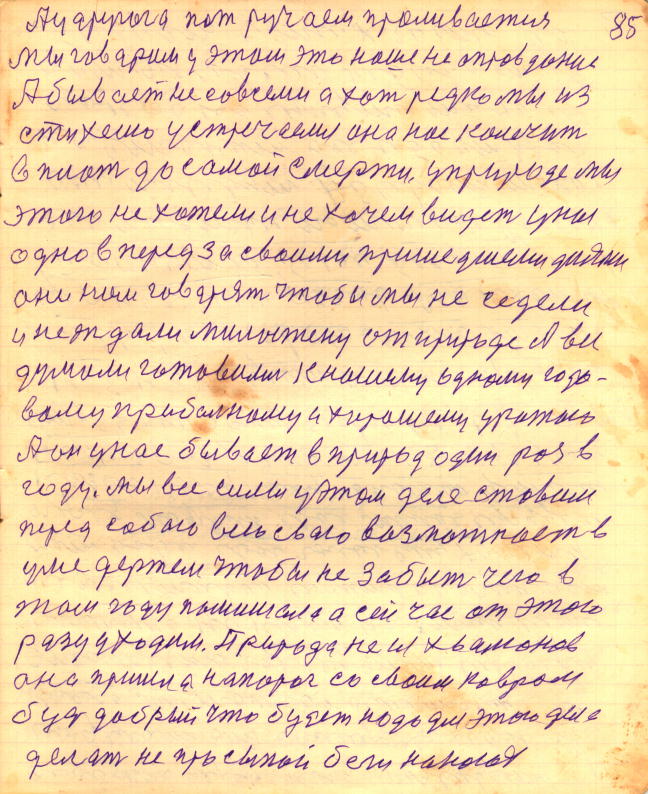 85
А у другога пот ручаем проливается
мы говарим у этом это наше не оправдание
А бывает не совсеми а хот редко мы из
стихею устречаемся она нас калечит
в плот до самой смерти, у природе мы
этого не хотели и не хочем видет у ных
одно вперед за своими пришедшеми днями
они нам говарят чтобы мы не седели
и не ждали милостену от природе А вы
думали готовили к нашему одному годо-
вому прибалному и хорошему урожаю
А он у нас бывает в природ один роз в
году. мы все силы у этом деле ставим
перед собою всю сваю возможность в
уме держем чтобы не забыт чего в
том году помишала а сей час от этого
разу уходим. Природа не
она пришла на порог со своим ковром
буд добрый что будет надо для этого дела
делат не просыпой беги